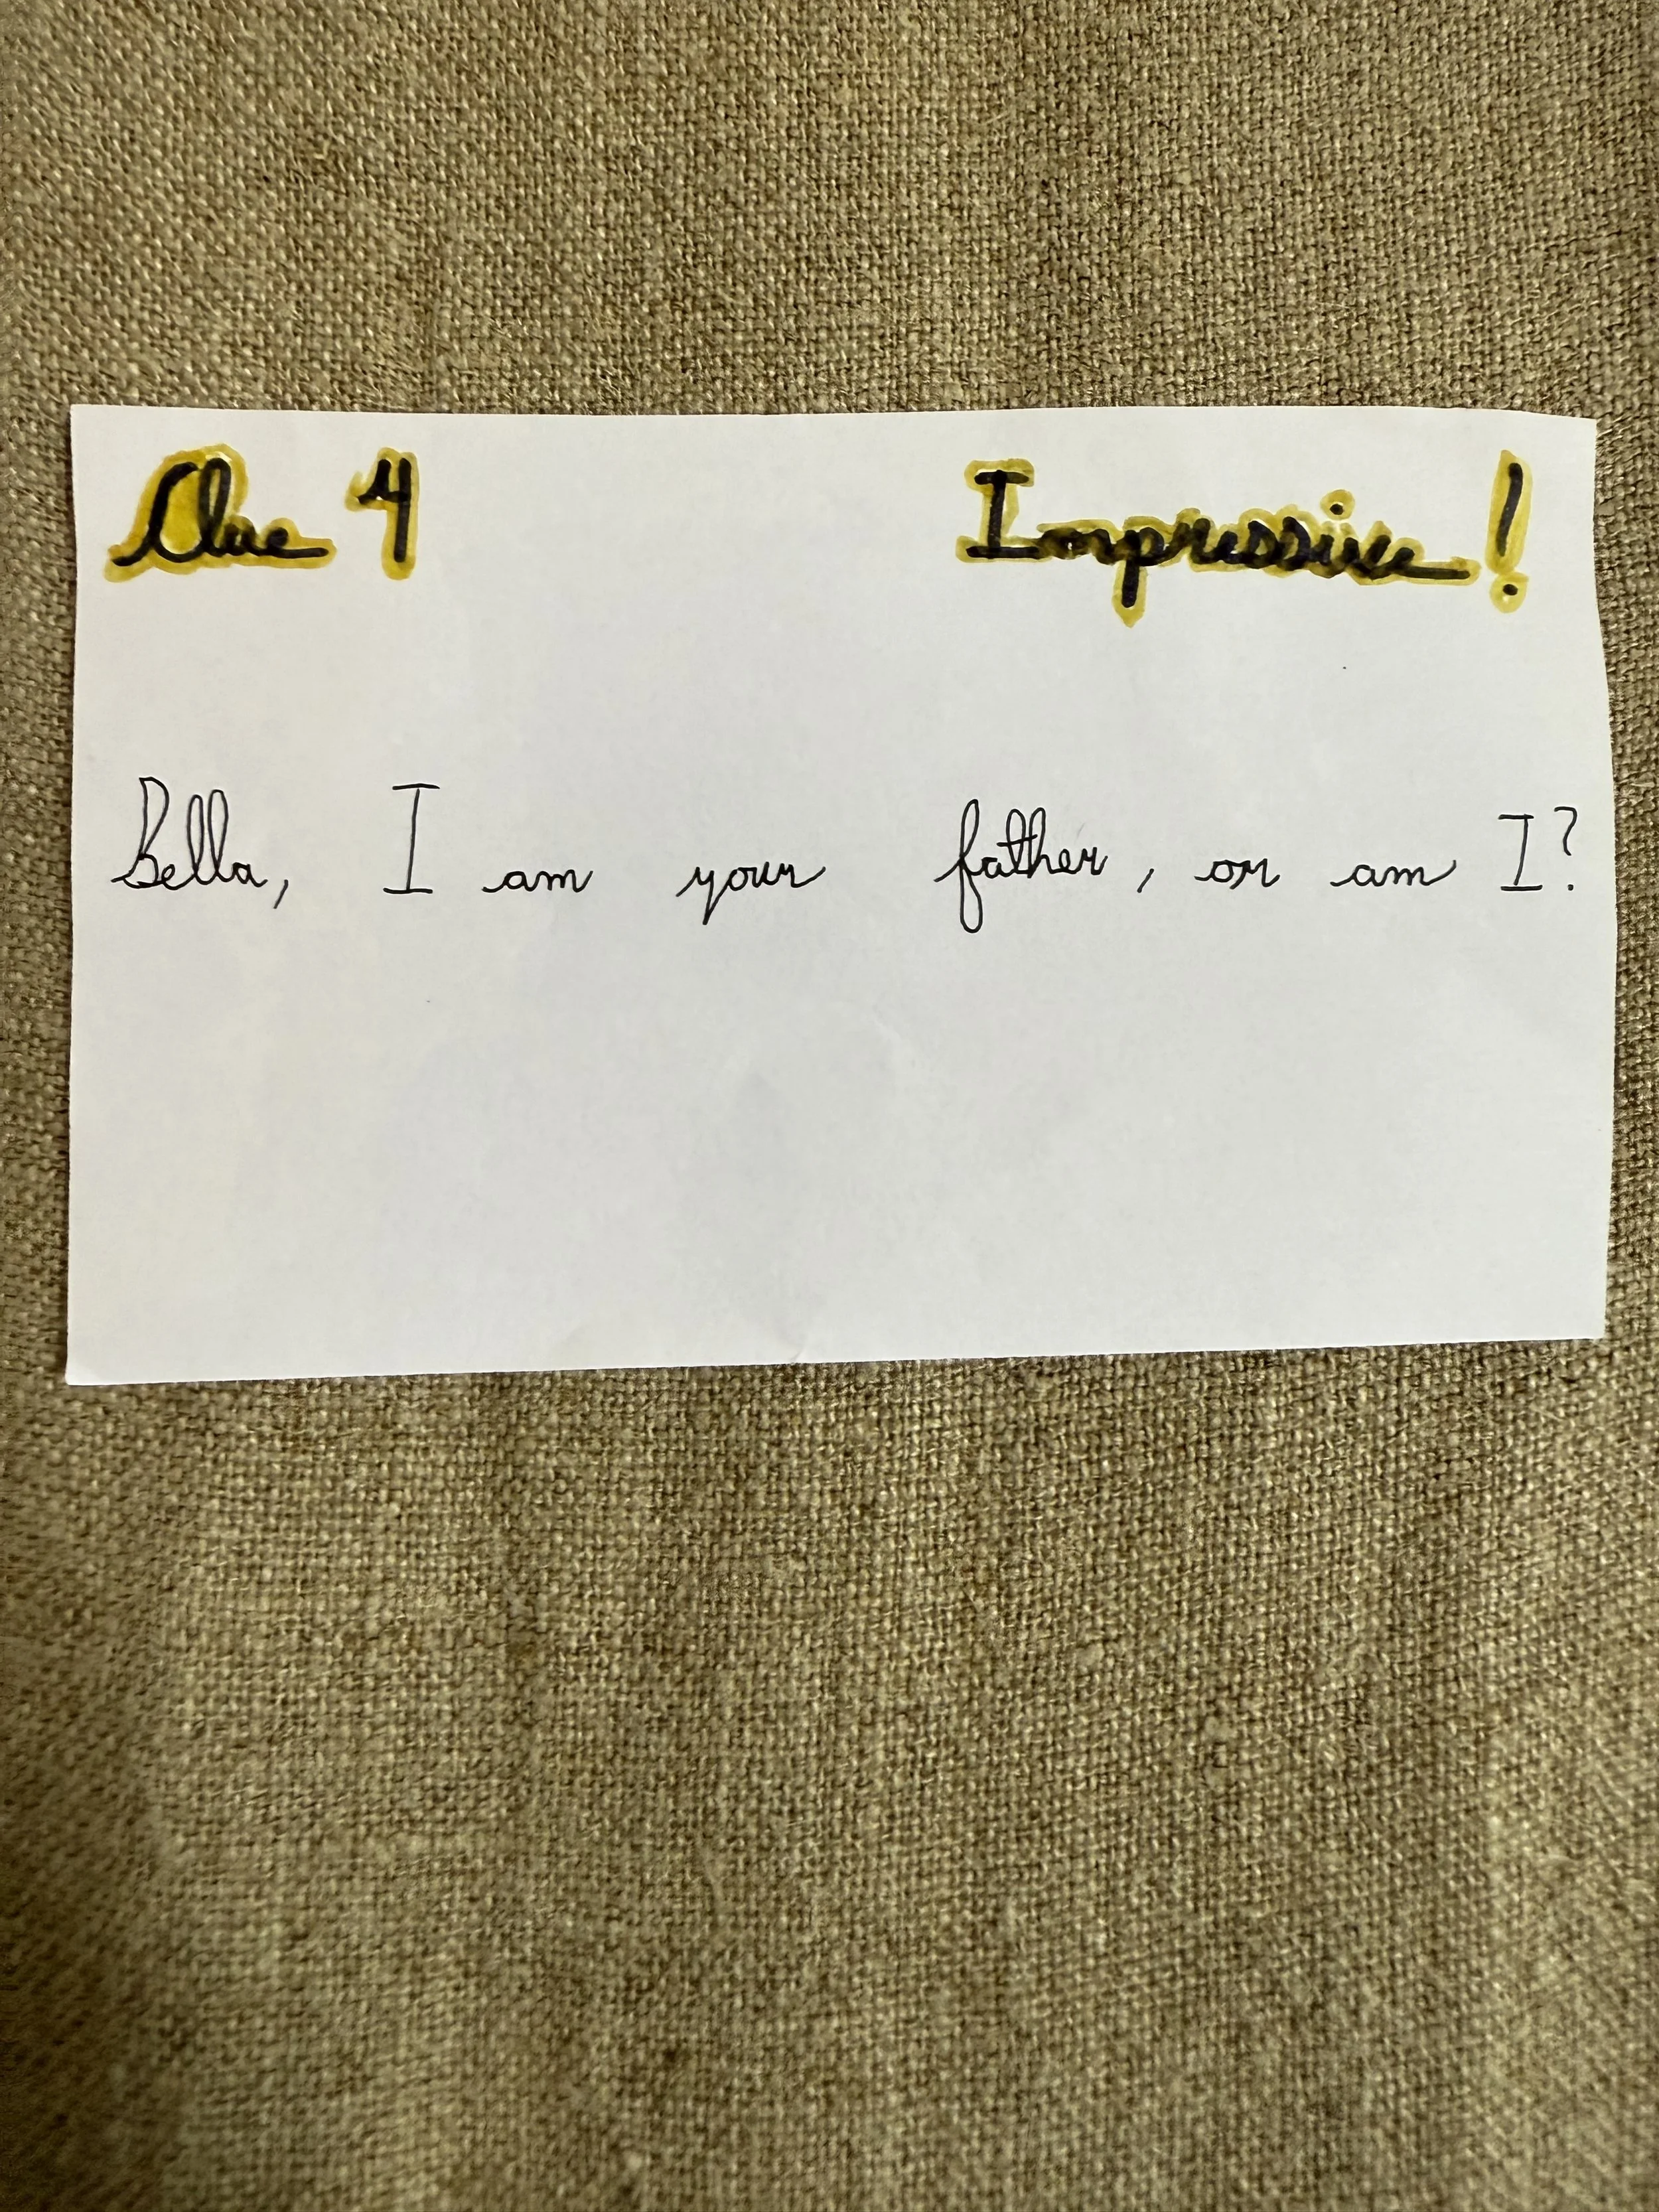 Clue 4 Impressive!
Bella, I am your father, or am I?